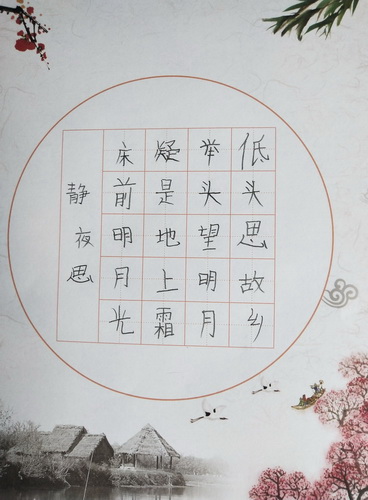 静夜思
床前明月光
凝是地上霜
举头望明月
低头思故乡